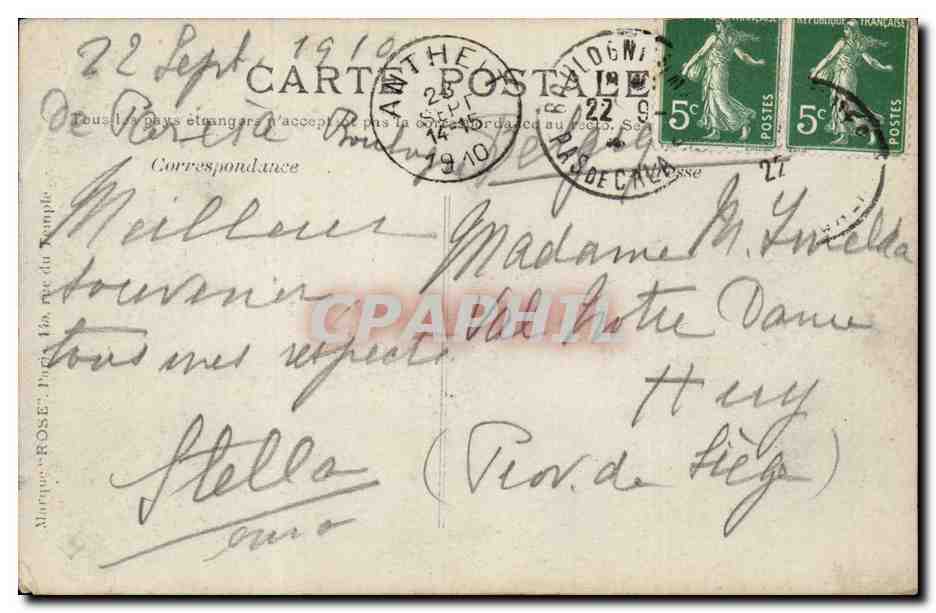 22 Sept. 1910
CARTE POSTALE
Tous les pays étrangers n'acceptent pas la correspondance au recto. Se
Correspondance
Meilleur
souvenir,
tous mes respects
Stella
Madame M. Imelda
Notre Dame
Huy
(Prov. de Liège)
ANTHEIT
23
SEPT
14 15
1910
BOULOGNE
22 9
PAS DE CALAIS
22
RÉPUBLIQUE FRANÇAISE
5c POSTES
5c POSTES
Marque "ROSE". Paris, rue du Temple
CPAPHIL